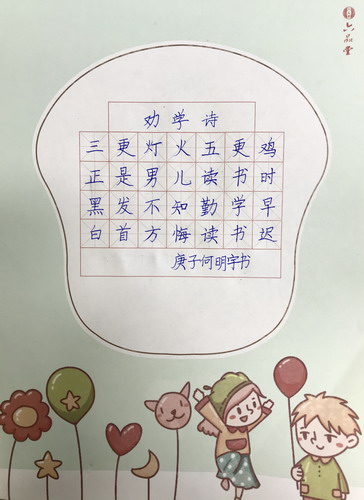 六品堂
劝学诗
三更灯火五更鸡
正是男儿读书时
黑发不知勤学早
白首方悔读书迟
庚子何明字书